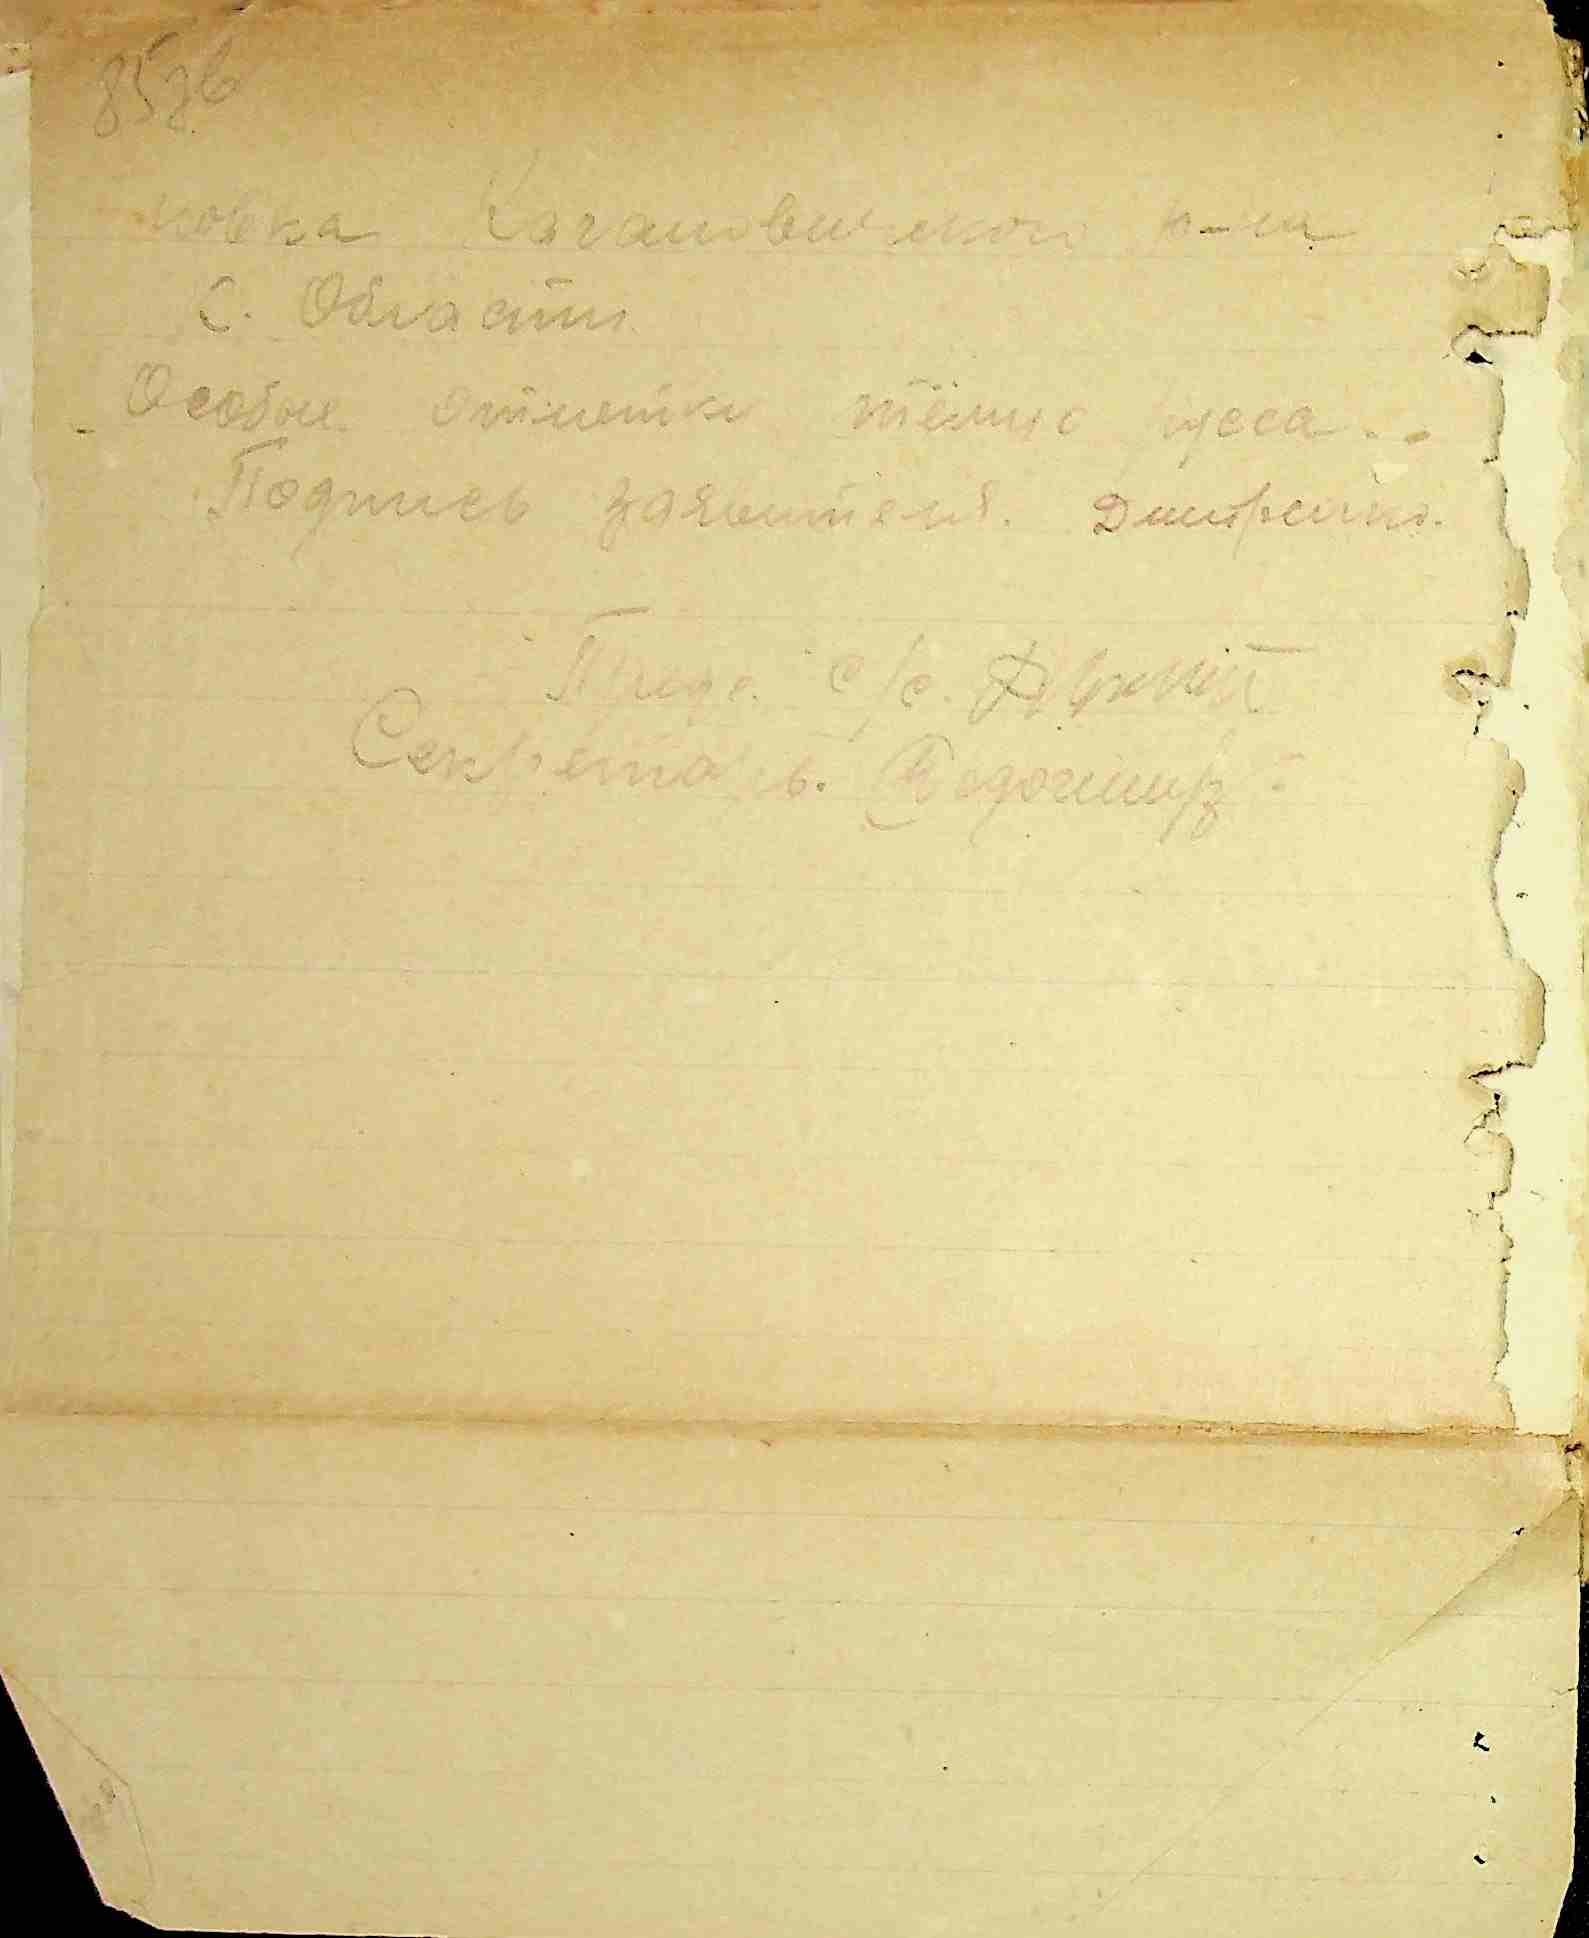 85зв
новка Кагановического р-на
С. Области
Особые отметки тёмно руса.
Подпись заявителя. Дмитренко.
Пред. с/с.
Секретарь.